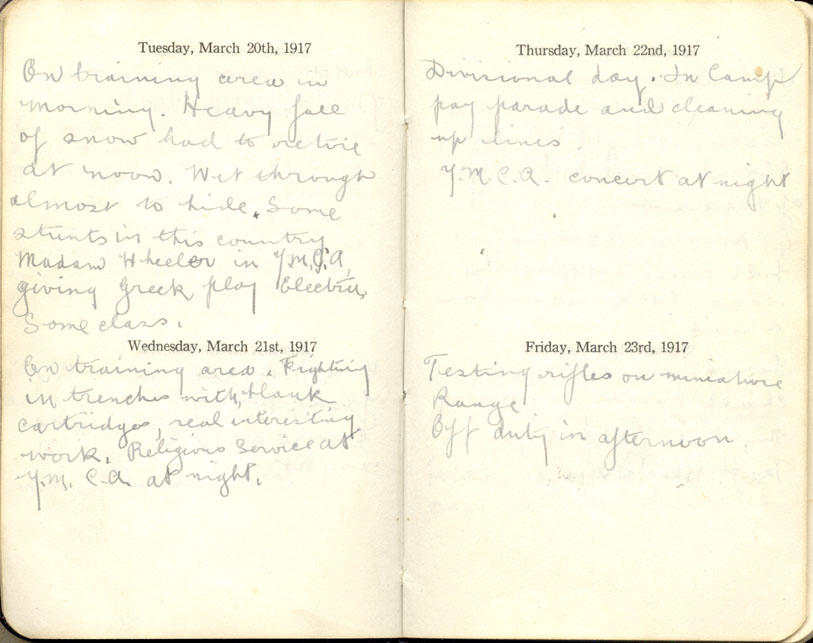 Tuesday, March 20th, 1917
On training area in
morning. Heavy fall
of snow had to retire
at noon. Wet through
almost to hide. Some
stunts in this country
Madam Wheeler in Y.M.C.A.
giving Greek play Electra.
Some class.
Wednesday, March 21st, 1917
On training area. Fighting
in trenches with blank
cartridges, real interesting
work. Religious Service at
Y.M. C.A. at night.
Thursday, March 22nd, 1917
Divisional day. In Camp
pay parade and cleaning
up lines.
Y.M C.A. concert at night
Friday, March 23rd, 1917
Testing rifles on miniature
Range
Off duty in afternoon.